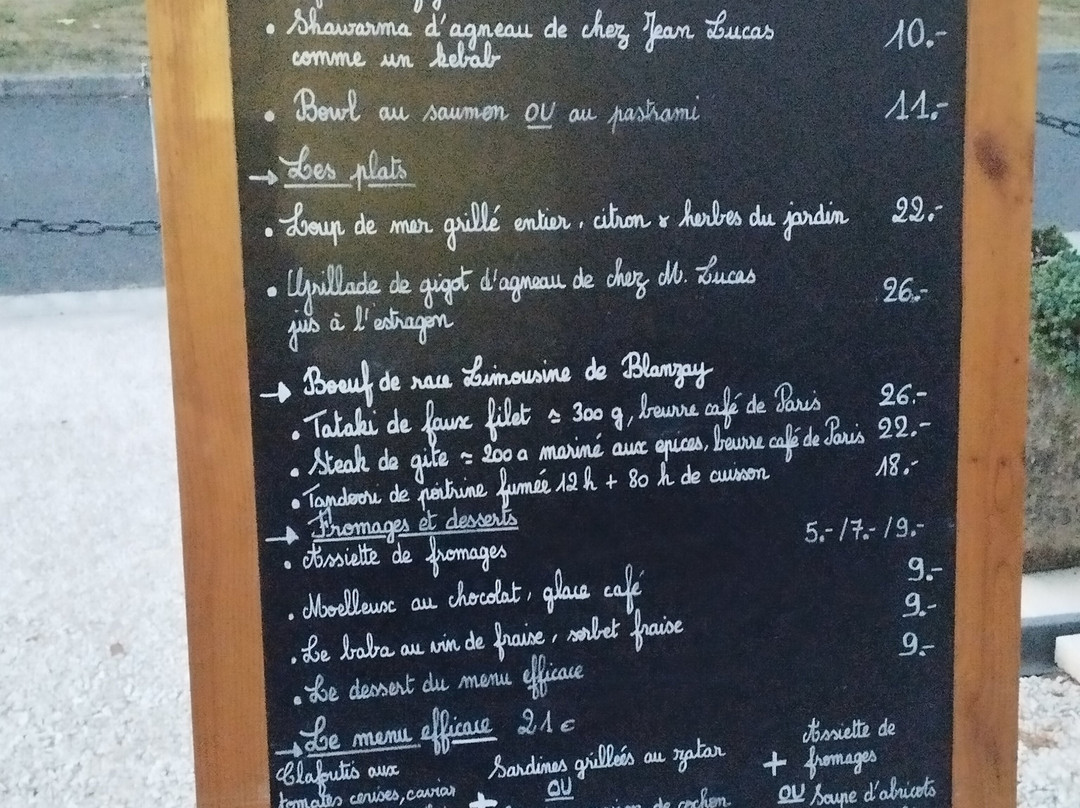 • Shawarma d'agneau de chez Jean Lucas 10.-
comme un kebab
• Bowl au saumon OU au pastrami 11.-
→ Les plats
• Loup de mer grillé entier, citron & herbes du jardin 22.-
• Grillade de gigot d'agneau de chez M. Lucas 26.-
jus à l'estragon
→ Boeuf de race Limousine de Blanzay
• Tataki de faux filet ≃ 300 g, beurre café de Paris 26.-
• Steak de gite ≃ 200 g mariné aux epices, beurre café de Paris 22.-
• Tandoori de poitrine fumée 12 h + 80 h de cuisson 18.-
→ Fromages et desserts
• Assiette de fromages 5.-/7.-/9.-
• Moelleux au chocolat, glace café 9.-
• Le baba au vin de fraise, sorbet fraise 9.-
• Le dessert du menu efficace 9.-
→ Le menu efficace 21€
Clafoutis aux
tomates cerises, caviar
+
Sardines grillées au zatar
OU
de cochon
+
Assiette de
fromages
OU Soupe d'abricots